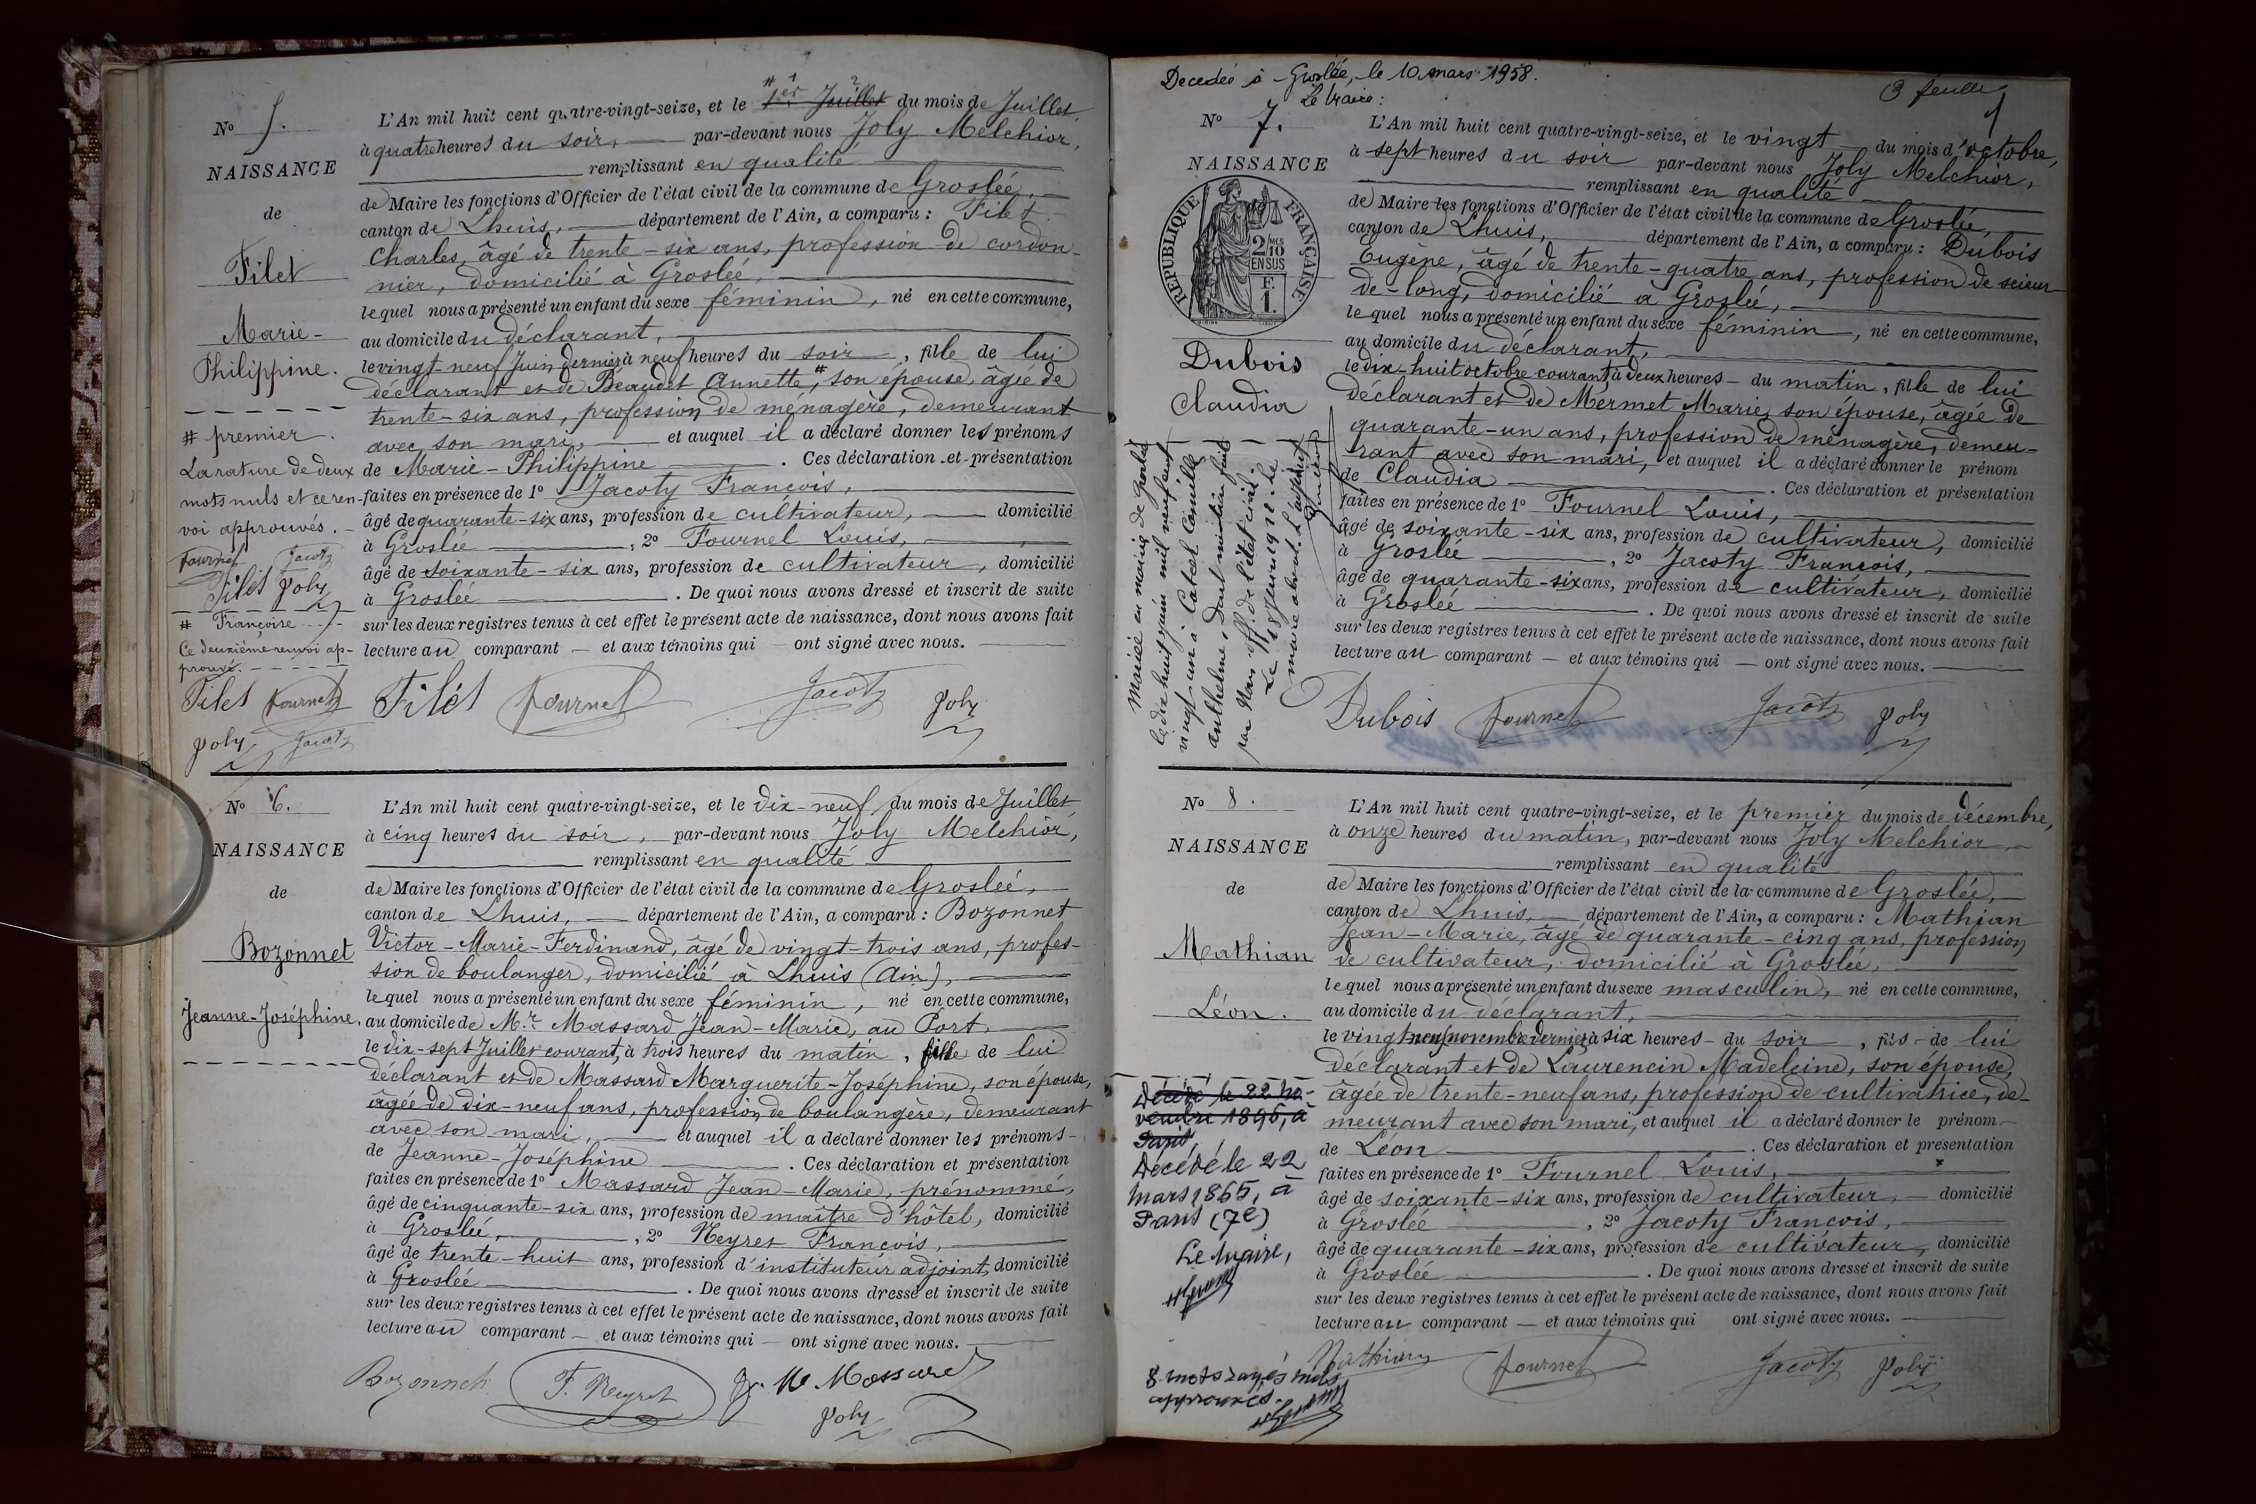 N° 5.
NAISSANCE
de
Filet
Marie-
Philippine.
# premier.
La rature de deux
mots nuls et ce ren-
voi approuvés.
Fournel Jacoty
Filet Joly
# Françoise
Ce deuxième renvoi ap-
prouvé.
Filet Fournel
Joly Jacoty
L'An mil huit cent quatre-vingt-seize, et le # 1er Juillet du mois de Juillet
à quatre heures du soir, par-devant nous Joly Melchior,
remplissant en qualité
de Maire les fonctions d'Officier de l'état civil de la commune de Groslée,
canton de Lhuis, département de l'Ain, a comparu : Filet
Charles, âgé de trente-six ans, profession de cordon-
nier, domicilié à Groslée,
lequel nous a présenté un enfant du sexe féminin, né en cette commune,
au domicile du déclarant,
le vingt-neuf Juin dernier à neuf heures du soir, fille de lui
déclarant et de Béaudet Annette,# son épouse, âgée de
trente-six ans, profession de ménagère, demeurant
avec son mari, et auquel il a déclaré donner les prénoms
de Marie-Philippine. Ces déclaration et présentation
faites en présence de 1° Jacoty François,
âgé de quarante-six ans, profession de cultivateur, domicilié
à Groslée, 2° Fournel Louis,
âgé de soixante-six ans, profession de cultivateur, domicilié
à Groslée. De quoi nous avons dressé et inscrit de suite
sur les deux registres tenus à cet effet le présent acte de naissance, dont nous avons fait
lecture au comparant — et aux témoins qui — ont signé avec nous.
Filet Fournel Jacoty Joly
N° 6.
NAISSANCE
de
Bozonnet
Jeanne-Joséphine.
L'An mil huit cent quatre-vingt-seize, et le dix-neuf du mois de Juillet
à cinq heures du soir, par-devant nous Joly Melchior,
remplissant en qualité
de Maire les fonctions d'Officier de l'état civil de la commune de Groslée,
canton de Lhuis, département de l'Ain, a comparu : Bozonnet
Victor-Marie-Ferdinand, âgé de vingt-trois ans, profes-
sion de boulanger, domicilié à Lhuis (Ain),
lequel nous a présenté un enfant du sexe féminin, né en cette commune,
au domicile de M.r Massard Jean-Marie, au Port,
le dix-sept Juillet courant, à trois heures du matin, fille de lui
déclarant et de Massard Marguerite-Joséphine, son épouse,
âgée de dix-neuf ans, profession de boulangère, demeurant
avec son mari, et auquel il a déclaré donner les prénoms
de Jeanne-Joséphine. Ces déclaration et présentation
faites en présence de 1° Massard Jean-Marie, prénommé,
âgé de cinquante-six ans, profession de maître d'hôtel, domicilié
à Groslée, 2° Neyret François,
âgé de trente-huit ans, profession d'instituteur adjoint, domicilié
à Groslée. De quoi nous avons dressé et inscrit de suite
sur les deux registres tenus à cet effet le présent acte de naissance, dont nous avons fait
lecture au comparant — et aux témoins qui — ont signé avec nous.
Bozonnet F. Neyret J. M Massard
Joly
Decedée à Groslée, le 10 mars 1958.
Le Maire :
3 feuille
N° 7.
NAISSANCE
RÉPUBLIQUE FRANÇAISE
2 MES 10
EN SUS
F.
1.
Dubois
Claudia
Mariée en mairie de Groslée
le dix huit juin mil neuf cent
vingt-un à Catal Camille
Anthelme, dont mention faite
par Nous off. de l'état civil
Le 18 Juin 1921. Le
maire absent. L'adjoint
L'An mil huit cent quatre-vingt-seize, et le vingt du mois d'octobre,
à sept heures du soir par-devant nous Joly Melchior,
remplissant en qualité
de Maire les fonctions d'Officier de l'état civil de la commune de Groslée,
canton de Lhuis, département de l'Ain, a comparu : Dubois
Eugène, âgé de trente-quatre ans, profession de scieur-
de-long, domicilié à Groslée,
lequel nous a présenté un enfant du sexe féminin, né en cette commune,
au domicile du déclarant,
le dix-huit octobre courant à deux heures du matin, fille de lui
déclarant et de Mermet Marie, son épouse, âgée de
quarante-un ans, profession de ménagère, demeu-
rant avec son mari, et auquel il a déclaré donner le prénom
de Claudia. Ces déclaration et présentation
faites en présence de 1° Fournel Louis,
âgé de soixante-six ans, profession de cultivateur, domicilié
à Groslée, 2° Jacoty François,
âgé de quarante-six ans, profession de cultivateur, domicilié
à Groslée. De quoi nous avons dressé et inscrit de suite
sur les deux registres tenus à cet effet le présent acte de naissance, dont nous avons fait
lecture au comparant — et aux témoins qui — ont signé avec nous.
Dubois Fournel Jacoty Joly
N° 8.
NAISSANCE
de
Mathian
Léon.
Décédé le 22 no-
vembre 1896, à
Paris
Décédé le 22
mars 1965, à
Paris (7e)
Le Maire,
8 mots rayés nuls
approuvés.
L'An mil huit cent quatre-vingt-seize, et le premier du mois de décembre,
à onze heures du matin, par-devant nous Joly Melchior
remplissant en qualité
de Maire les fonctions d'Officier de l'état civil de la commune de Groslée,
canton de Lhuis, département de l'Ain, a comparu : Mathian
Jean-Marie, âgé de quarante-cinq ans, profession
de cultivateur, domicilié à Groslée,
lequel nous a présenté un enfant du sexe masculin, né en cette commune,
au domicile du déclarant,
le vingt neuf novembre dernier à six heures du soir, fils de lui
déclarant et de Laurencin Madeleine, son épouse,
âgée de trente-neuf ans, profession de cultivatrice, de-
meurant avec son mari, et auquel il a déclaré donner le prénom
de Léon. Ces déclaration et présentation
faites en présence de 1° Fournel Louis,
âgé de soixante-six ans, profession de cultivateur, domicilié
à Groslée, 2° Jacoty François,
âgé de quarante-six ans, profession de cultivateur, domicilié
à Groslée. De quoi nous avons dressé et inscrit de suite
sur les deux registres tenus à cet effet le présent acte de naissance, dont nous avons fait
lecture au comparant — et aux témoins qui ont signé avec nous.
Mathian Fournel Jacoty Joly